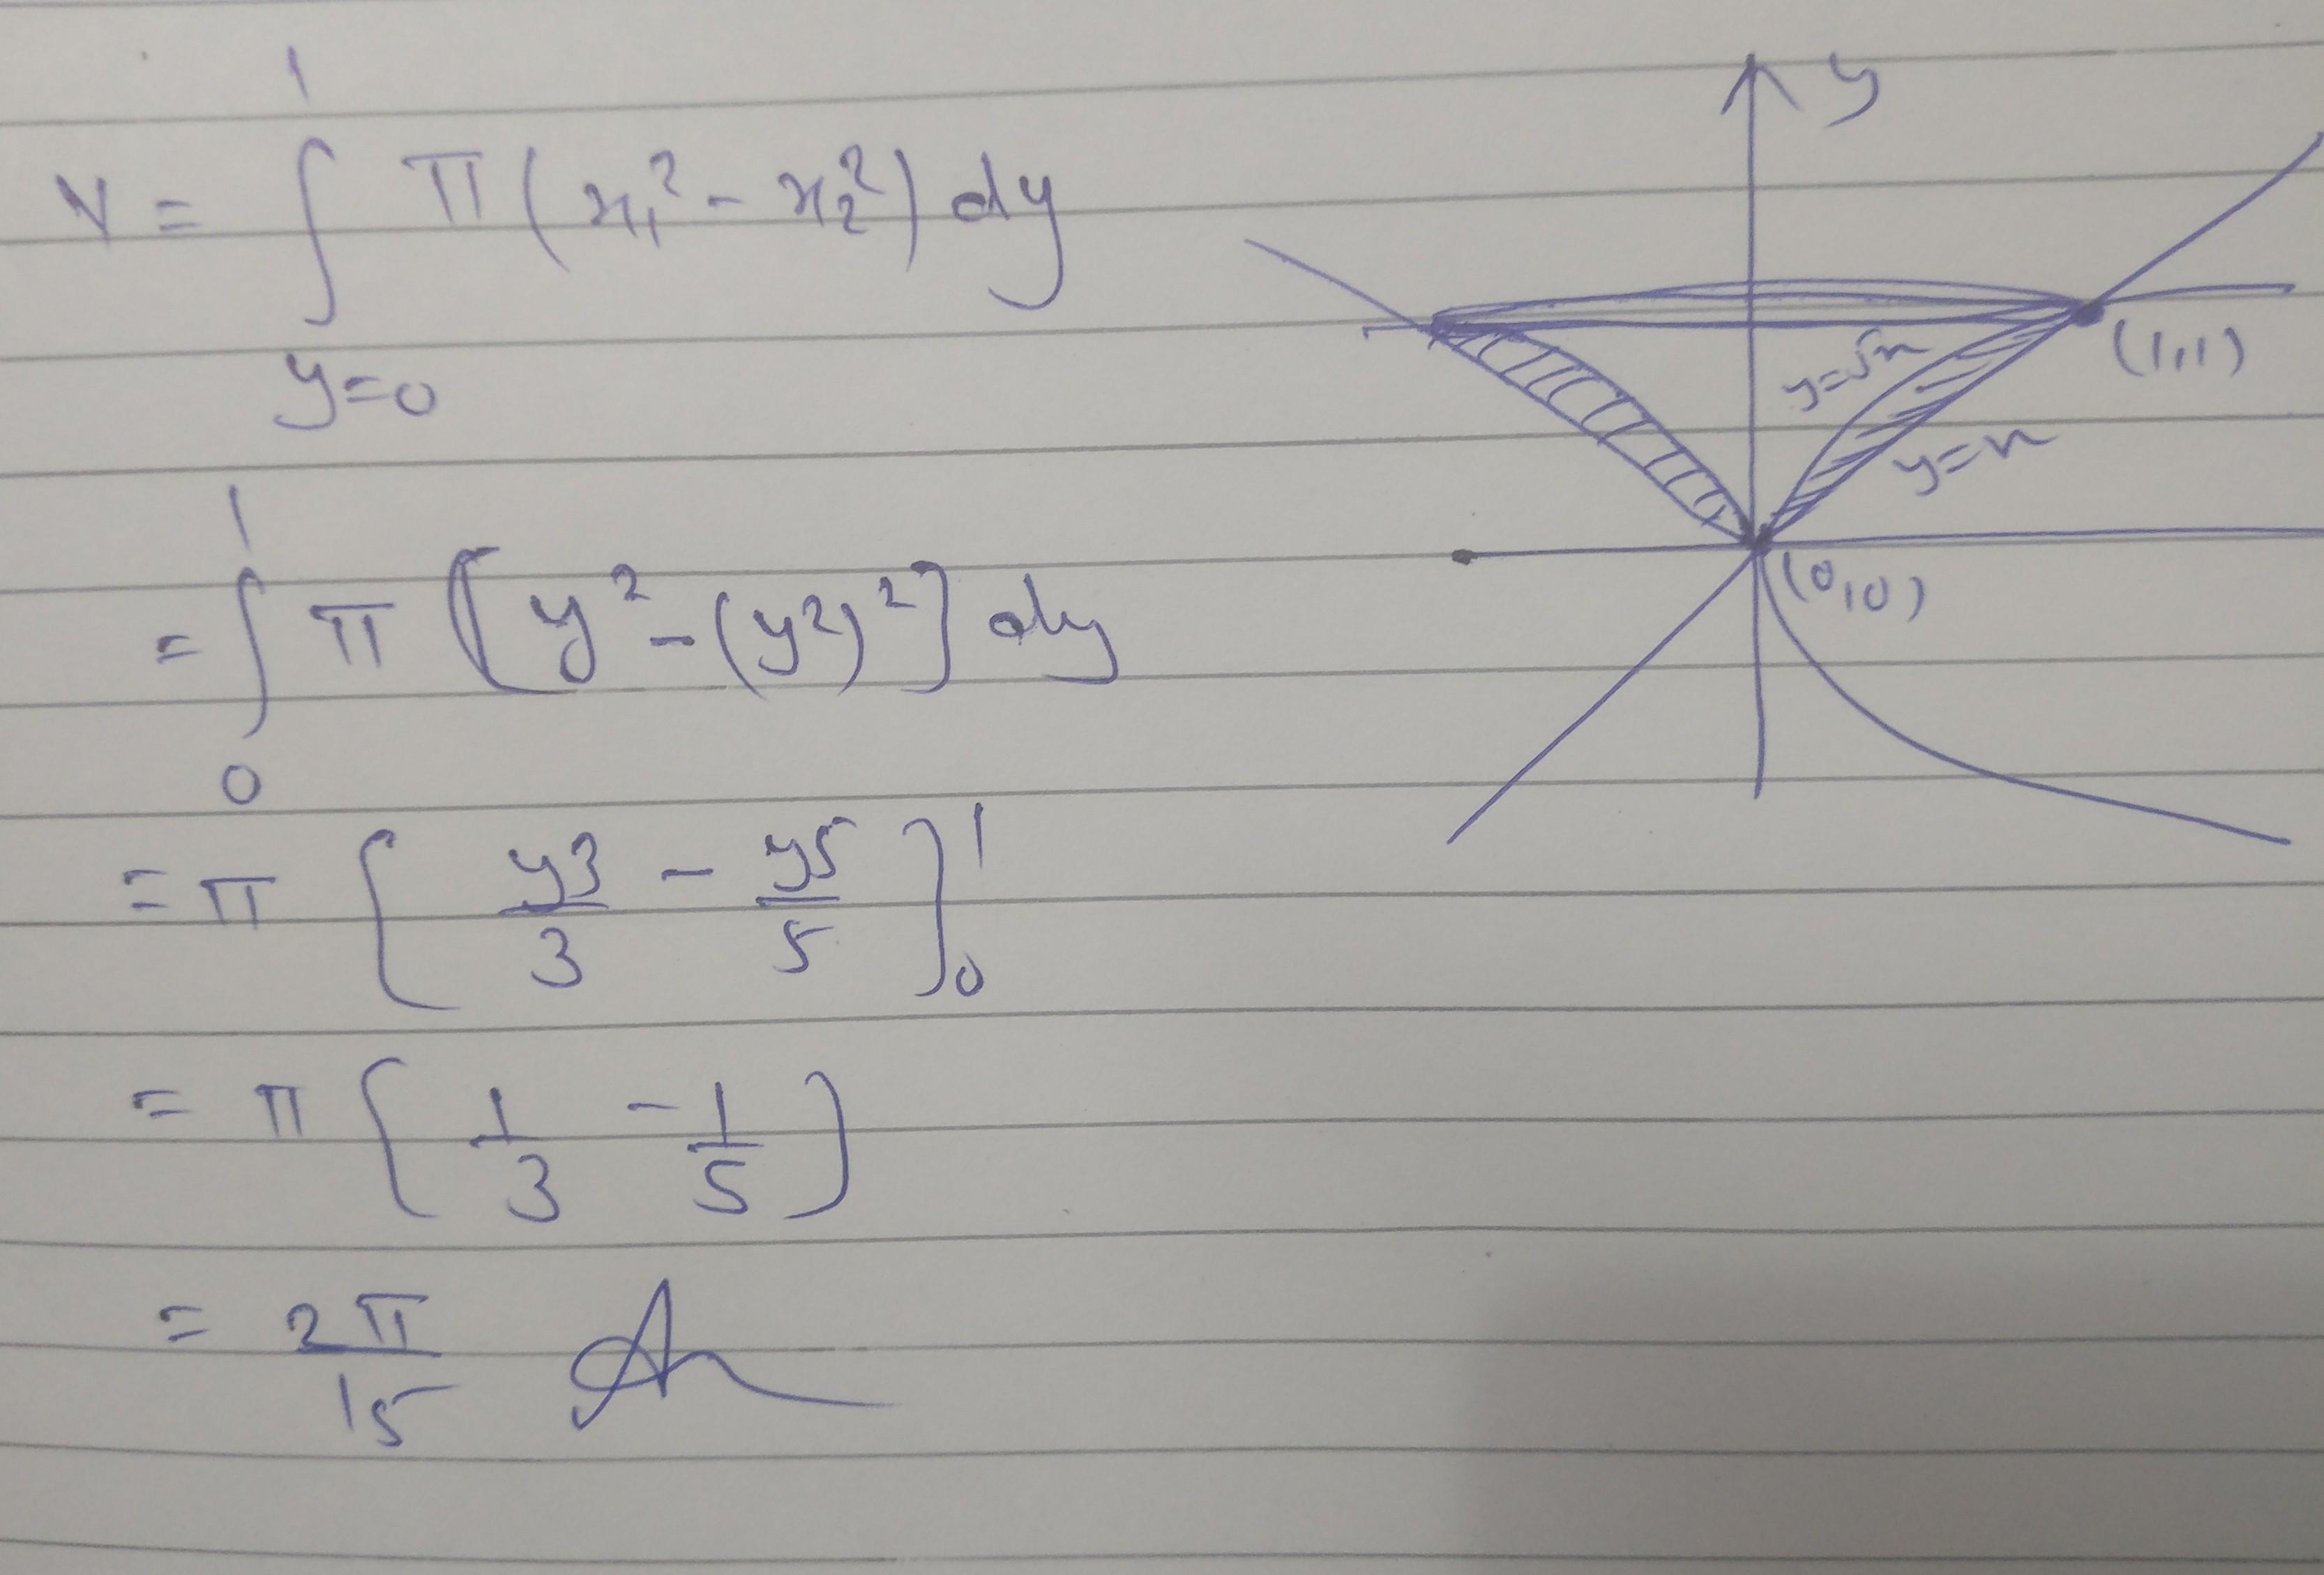 V = ∫_{y=0}^{1} π (x₁² - x₂²) dy
= ∫_{0}^{1} π [y² - (y²)²] dy
= π [y3/3 - y5/5]_{0}^{1}
= π [1/3 - 1/5]
= 2π/15
y
y=√x
(1,1)
y=x
(0,0)